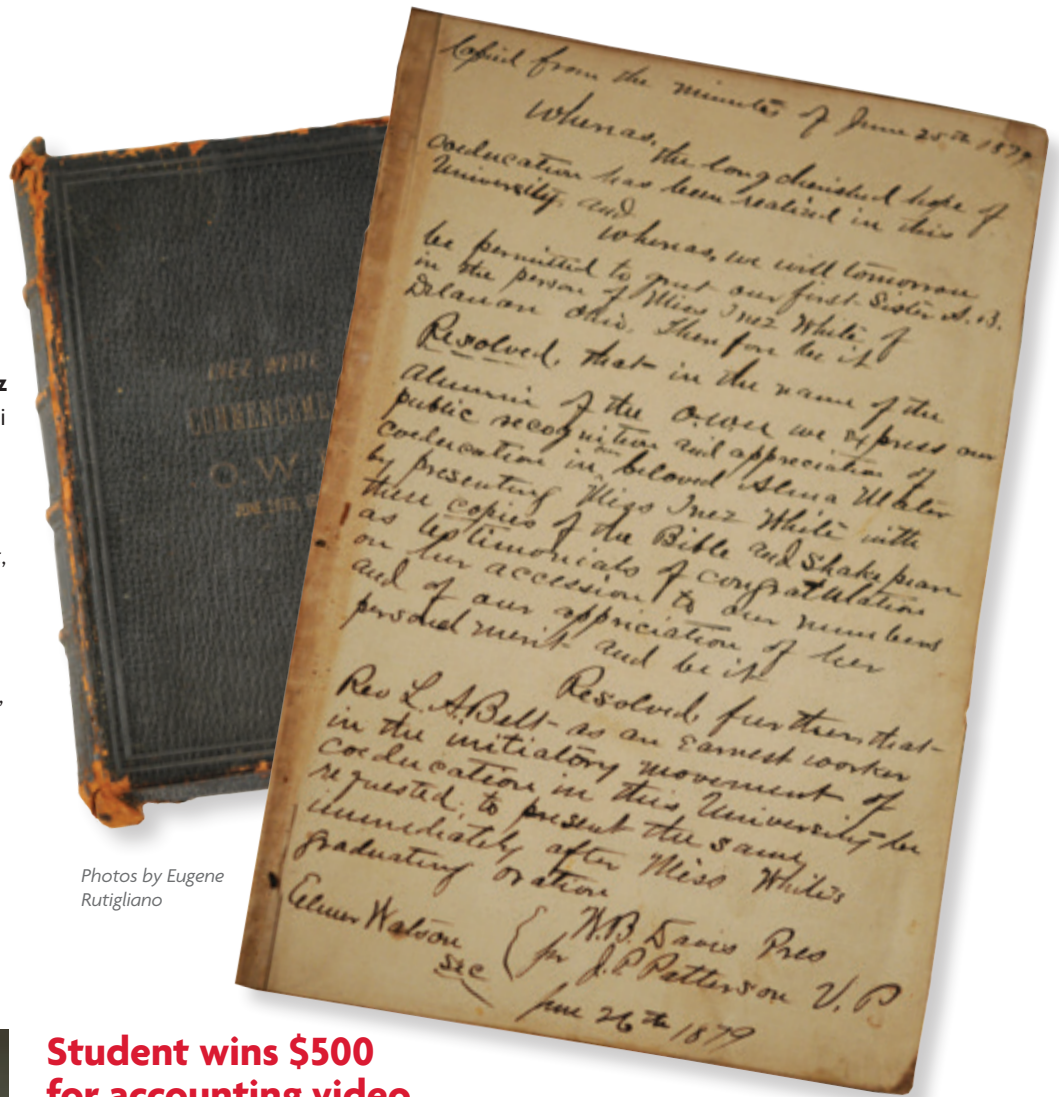 Copied from the minutes of June 25th 1879
Whereas, the long cherished hope of
coeducation has been realized in this
University, and
Whereas, we will tomorrow
be permitted to greet our first Sister A.B.
in the person of Miss Inez White of
Delaware Ohio. Therefore be it
Resolved, that in the name of the
Alumni of the O.W.U we express our
public recognition and appreciation of
coeducation in our beloved Alma Mater
by presenting Miss Inez White with
these copies of the Bible and Shakspeare
as testimonials of congratulation
on her accession to our numbers
and of our appreciation of her
personal merit and be it
Resolved, further, that
Rev L. A. Belt as an earnest worker
in the initiatory movement of
coeducation in this University be
requested to present the same
immediately after Miss White's
graduating oration
Elmer Watson
Sec
W.B. Davis Pres
per J. P. Patterson V. P
June 26th 1879
INEZ WHITE
COMMENCEMENT
O. W.
JUNE 26TH,
z
i
,
,
Photos by Eugene
Rutigliano
Student wins $500
for accounting video